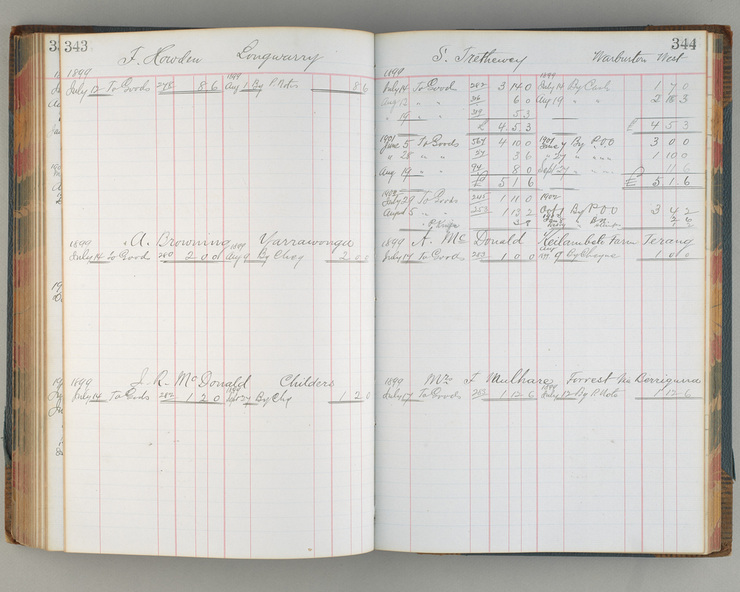 343
F. Howden Longwarry
1899
July 12 To Goods 278 8 6 1899 Aug 1 By P. Note 8 6
1899 A. Browning Yarrawonga
July 14 To Goods 280 2 0 0 1899 Aug 9 By Cheq 2 0 0
1899 J. R. McDonald Childers
July 14 To Goods 282 1 2 0 1899 By Chq 1 2 0
344
S. Trethewey Warburton West
1899
July 14 To Goods 282 3 14 0 1899 July 14 By Cash 1 7 0
Aug 12 " " 6 0 Aug 19 " " 2 18 3
" 19 " " 5 3
£ 4 5 3 £ 4 5 3
1901
June 5 To Goods 4 10 0 1901 June 7 By P.O.O 3 0 0
" 28 " " 3 6 " 27 " " " 1 10 0
Aug 19 " " 8 0 Sept 27 " "
£ 5 1 6 £ 5 1 6
July 29 To Goods 1 11 0 1902
August 5 " 1 13 2 By P.O.O 3 4 2
1899 A. Mc Donald Keilambete Farm Terang
July 17 To Goods 283 1 0 0 Aug 9 By Cheque 1 0 0
1899 Mrs F Mulhare Forrest Nr Berrigurra
July 17 To Goods 1 12 6 1899 July 12 By P. Note 1 12 6